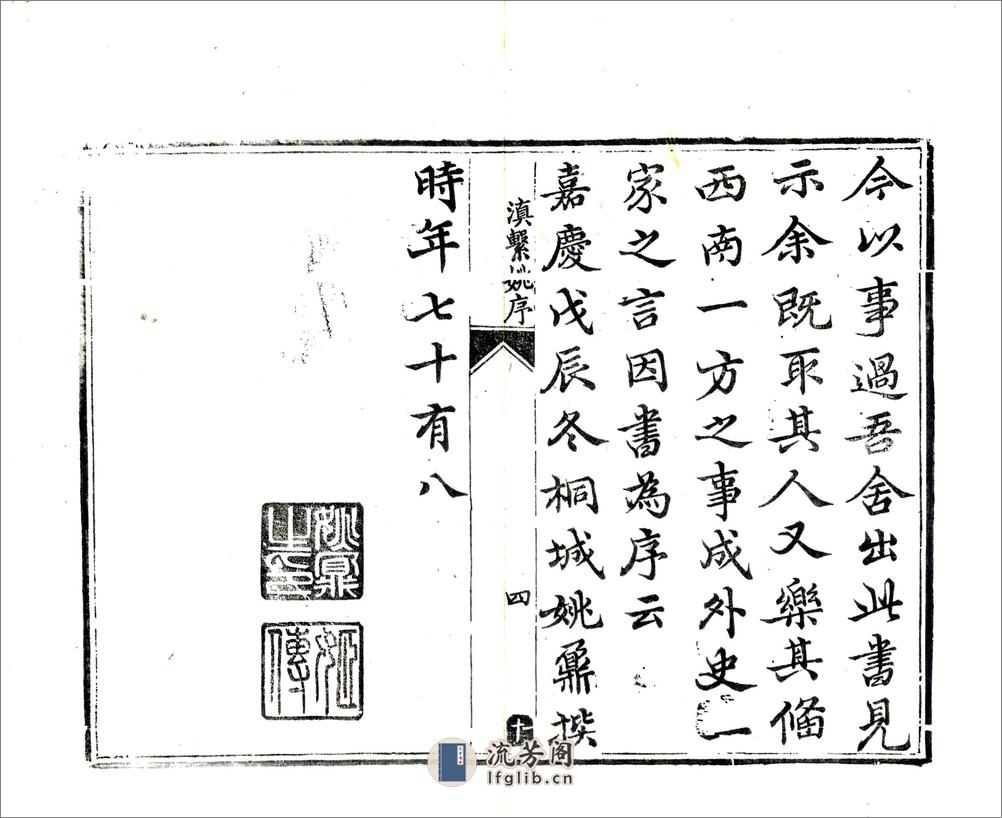 今以事過吾舍出此書見
示余既取其人又樂其備
西南一方之事成外史一
家之言因書為序云
嘉慶戊辰冬桐城姚鼐撰
滇繫姚序
四
十
時年七十有八
姚鼐之印
姬傳
流芳阁
lfglib.cn